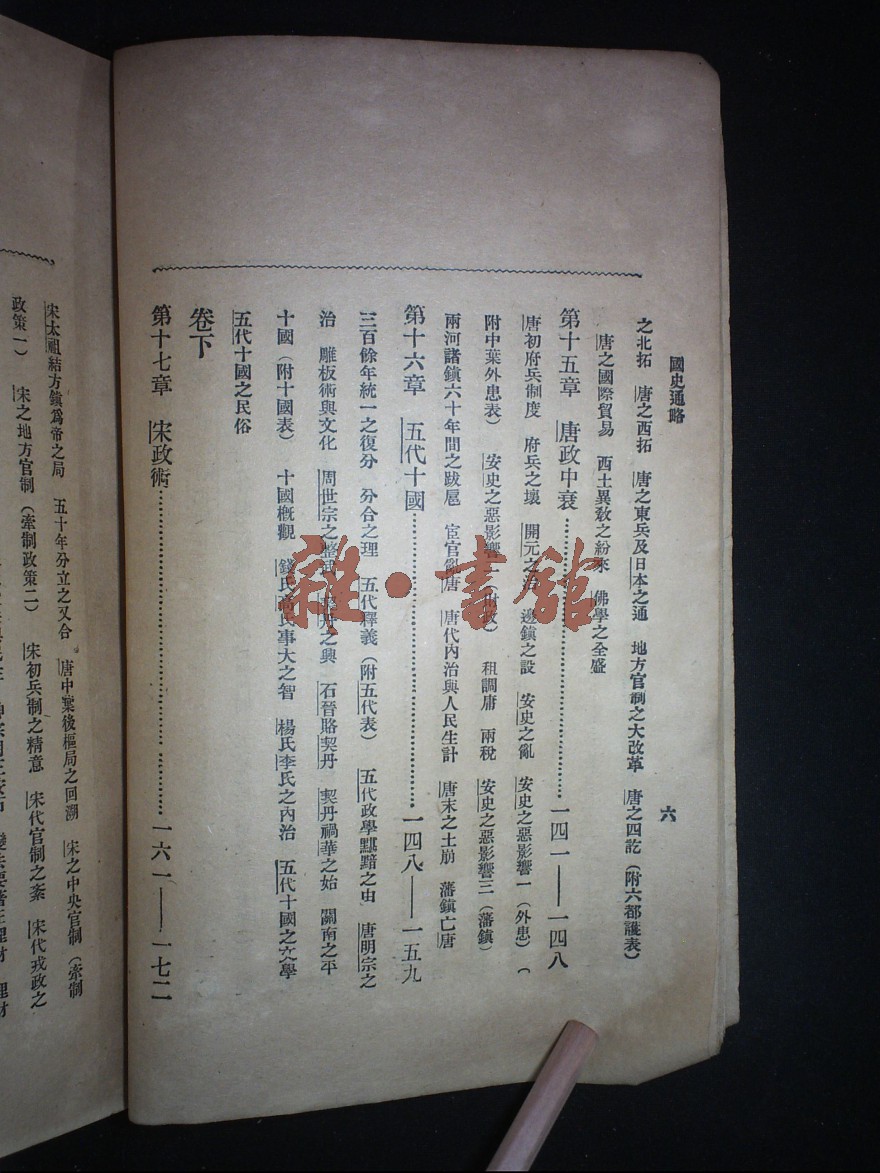 國史通略
六
之北拓　唐之西拓　唐之東兵及日本之通　地方官制之大改革　唐之四訖（附六都護表）
唐之國際貿易　西土異教之紛來　佛學之全盛
第十五章　唐政中衰…………一四一——一四八
唐初府兵制度　府兵之壞　開元之治　邊鎮之設　安史之亂　安史之惡影響一（外患）（
附中葉外患表）　安史之惡影響二（財政）　租調庸　兩稅　安史之惡影響三（藩鎮）
兩河諸鎮六十年間之跋扈　宦官亂唐　唐代內治與人民生計　唐末之土崩　藩鎮亡唐
第十六章　五代十國…………一四八——一五九
三百餘年統一之復分　分合之理　五代釋義（附五代表）　五代政學黮黯之由　唐明宗之
治　雕板術與文化　周世宗之整武　契丹之興　石晉賂契丹　契丹禍華之始　關南之平
十國（附十國表）　十國概觀　錢氏高氏事大之智　楊氏李氏之內治　五代十國之文學
五代十國之民俗
卷下
第十七章　宋政術…………一六一——一七二
宋太祖結方鎮為帝之局　五十年分立之又合　唐中葉後樞局之回溯　宋之中央官制（牽制
政策一）　宋之地方官制（牽制政策二）　宋初兵制之精意　宋代官制之紊　宋代戎政之
雜·書館